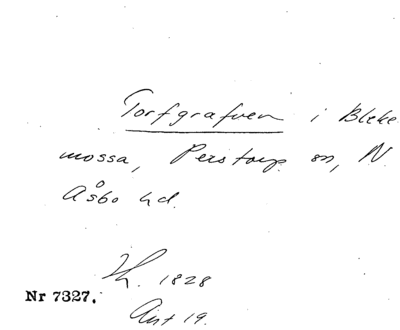 Torfgrafven i Bleke
mossa, Perstorp sn, N.
Åsbo hd.
Th. 1828
Nr 7327.
Aut 19.